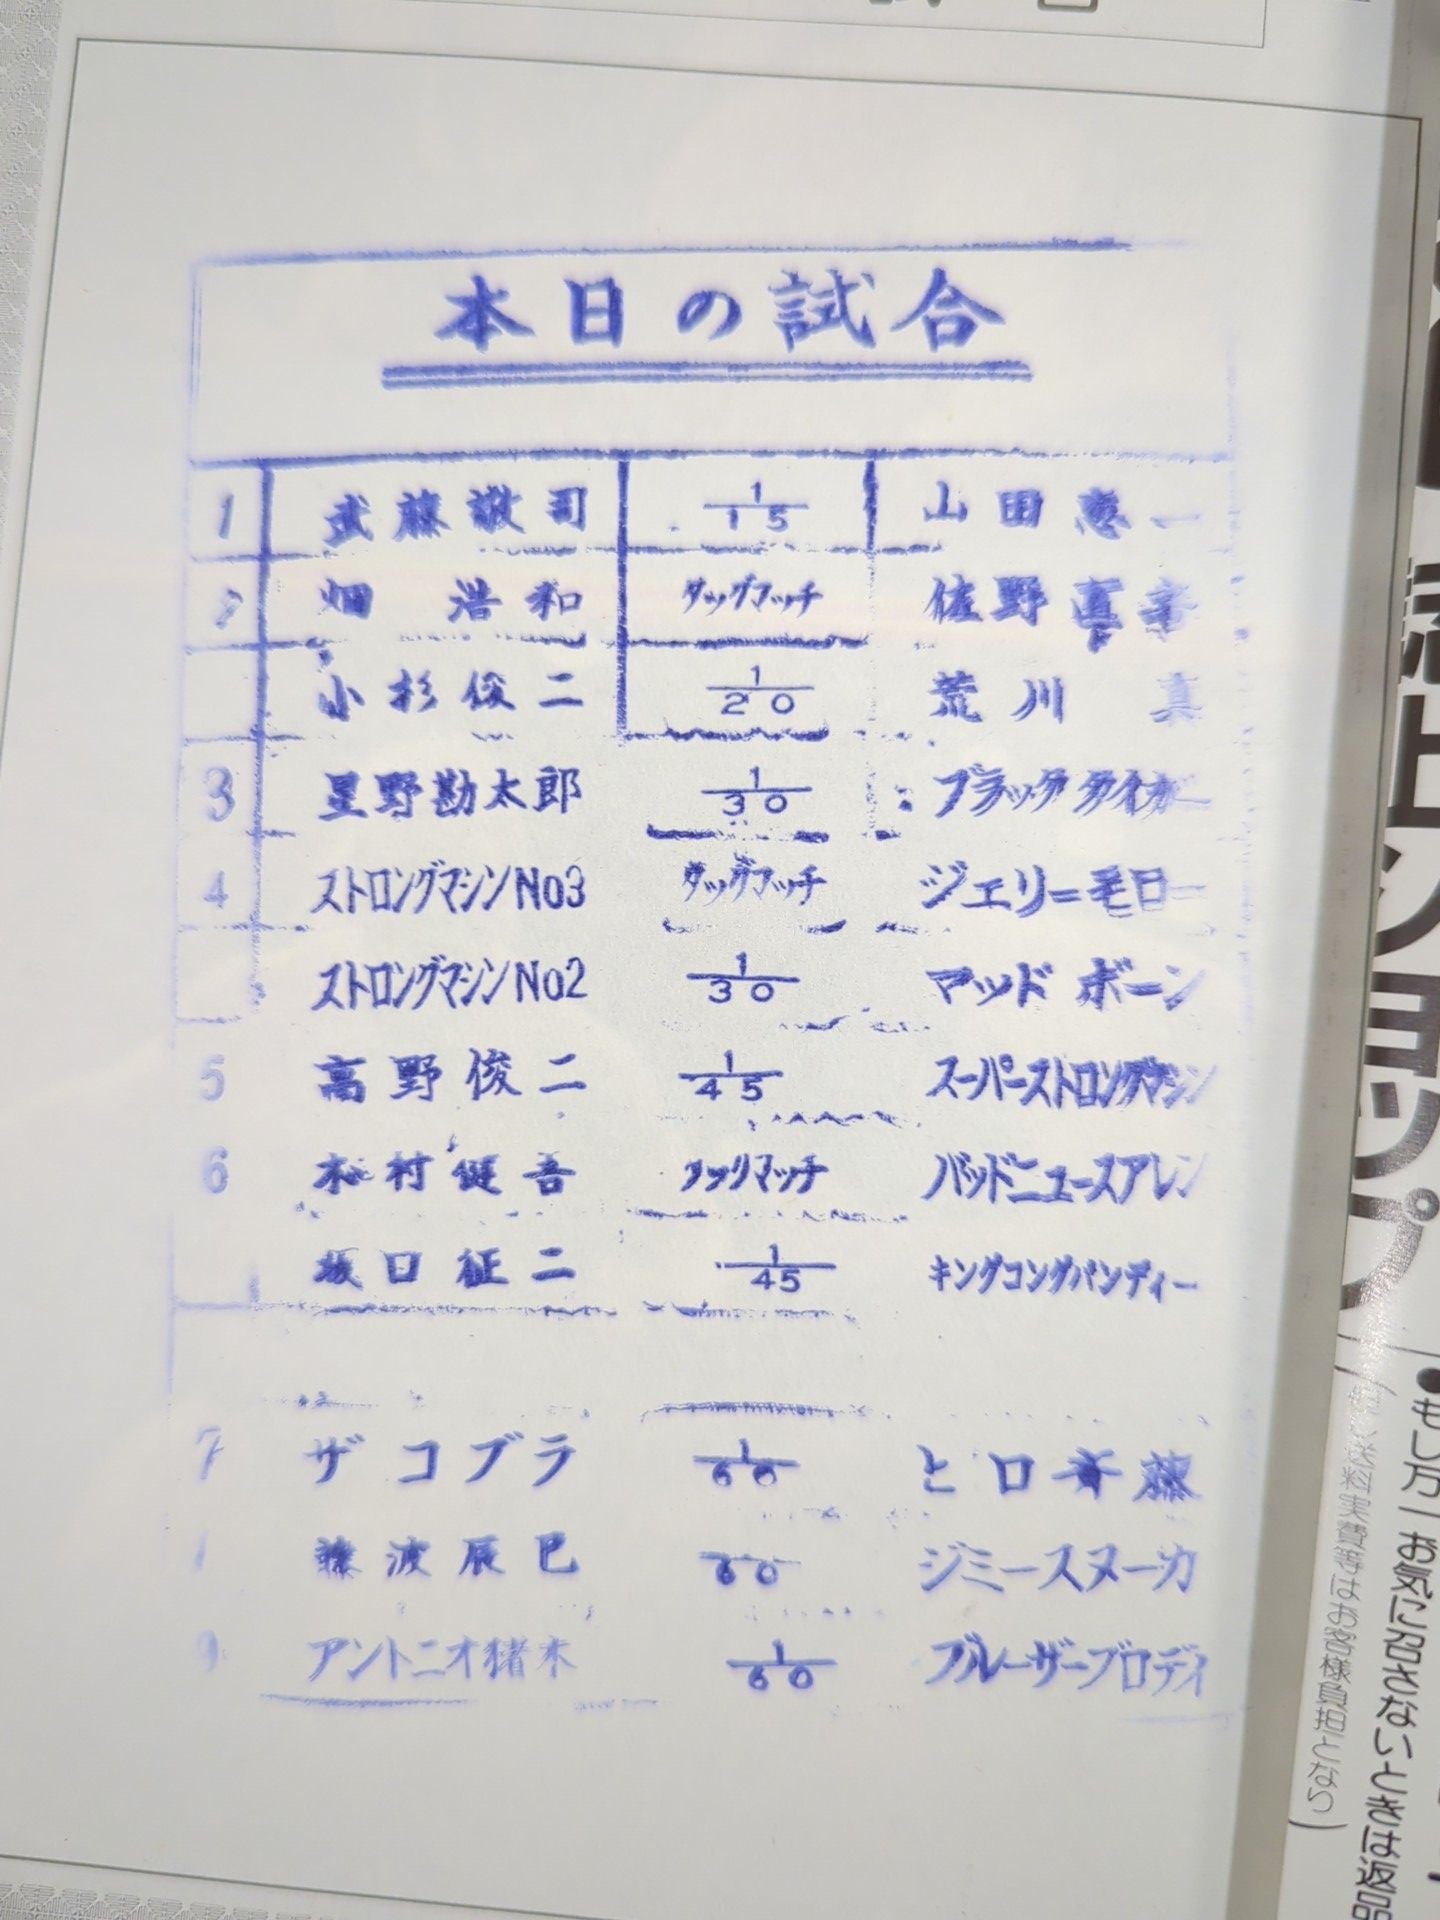 本日の試合
1 武藤敬司 1/15 山田恵一
2 畑浩和 タッグマッチ 佐野直幸
小杉俊二 1/20 荒川真
3 星野勘太郎 1/30 ブラックタイガー
4 ストロングマシンNo3 タッグマッチ ジェリー
ストロングマシンNo2 1/30 マッド ボーン
5 高野俊二 1/45 スーパーストロングマシン
6 木村健吾 タッグマッチ バッドニュースアレン
坂口征二 1/45 キングコングバンディー
7 ザコブラ 1/60 ヒロ斉藤
藤波辰巳 60 ジミースヌーカ
9 アントニオ猪木 1/60 ブルーザーブロディ
●もし万一お気に召さないときは返品